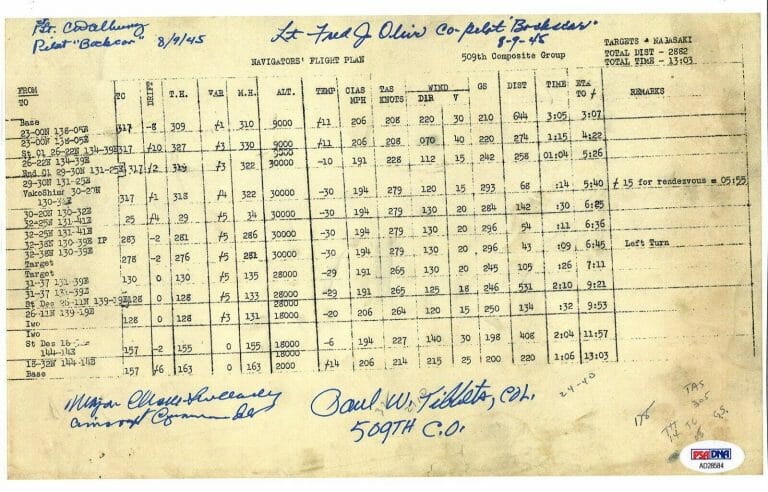 Pilot "Bockscar" 8/9/45
Lt Fred J Olivi Co-pilot "Bockscar"
8-9-45
NAVIGATORS' FLIGHT PLAN
509th Composite Group
TARGETS - NAGASAKI
TOTAL DIST - 2882
TOTAL TIME - 13:03
FROM TO TC DRIFT T.H. VAR M.H. ALT. TEMP CIAS MPH TAS KNOTS WIND DIR V GS DIST TIME ETA TO REMARKS
Base
23-00N 138-05E 317 -8 309 /1 310 9000 /11 206 208 220 30 210 644 3:05 3:07
23-00N 138-05E
St Cl 26-22N 134-39E 317 /10 327 /3 330 9000 /11 206 208 070 40 220 274 1:15 4:22
26-22N 134-39E
End Cl 29-30N 131-25E 317 /2 319 /3 322 30000 -10 191 228 112 15 242 258 01:04 5:26
29-30N 131-25E
YakoShima 30-20N
130-32E 317 /1 318 /4 322 30000 -30 194 279 120 15 293 68 :14 5:40 / 15 for rendezvous = 05:55
30-20N 130-32E
32-25N 131-41E 25 /4 29 /5 34 30000 -30 194 279 130 20 284 142 :30 6:25
32-25N 131-41E
32-38N 130-39E IP 283 -2 281 /5 286 30000 -30 194 279 130 20 296 54 :11 6:36
32-38N 130-39E
Target 278 -2 276 /5 281 30000 -30 194 279 130 20 296 43 :09 6:45 Left Turn
Target
31-37 131-39E 130 0 130 /5 135 28000 -29 191 265 130 20 245 105 :26 7:11
31-37 131-39E
St Des 26-11N 139-19E 128 0 128 /5 133 28000 -29 191 265 125 18 246 531 2:10 9:21
26-11N 139-19E
Iwo 128 0 128 /3 131 18000 -20 205 264 120 15 250 134 :32 9:53
Iwo
St Des
144-14E 157 -2 155 0 155 18000 -6 194 227 140 30 198 408 2:04 11:57
144-14E
Base 157 /6 163 0 163 2000 /14 206 214 215 25 200 220 1:06 13:03
Major Charles Sweeney
Aircraft Commander
Paul W. Tibbets, COL.
509TH C.O.
24-40
TAS
305
G.S.
PSA DNA
AD28584